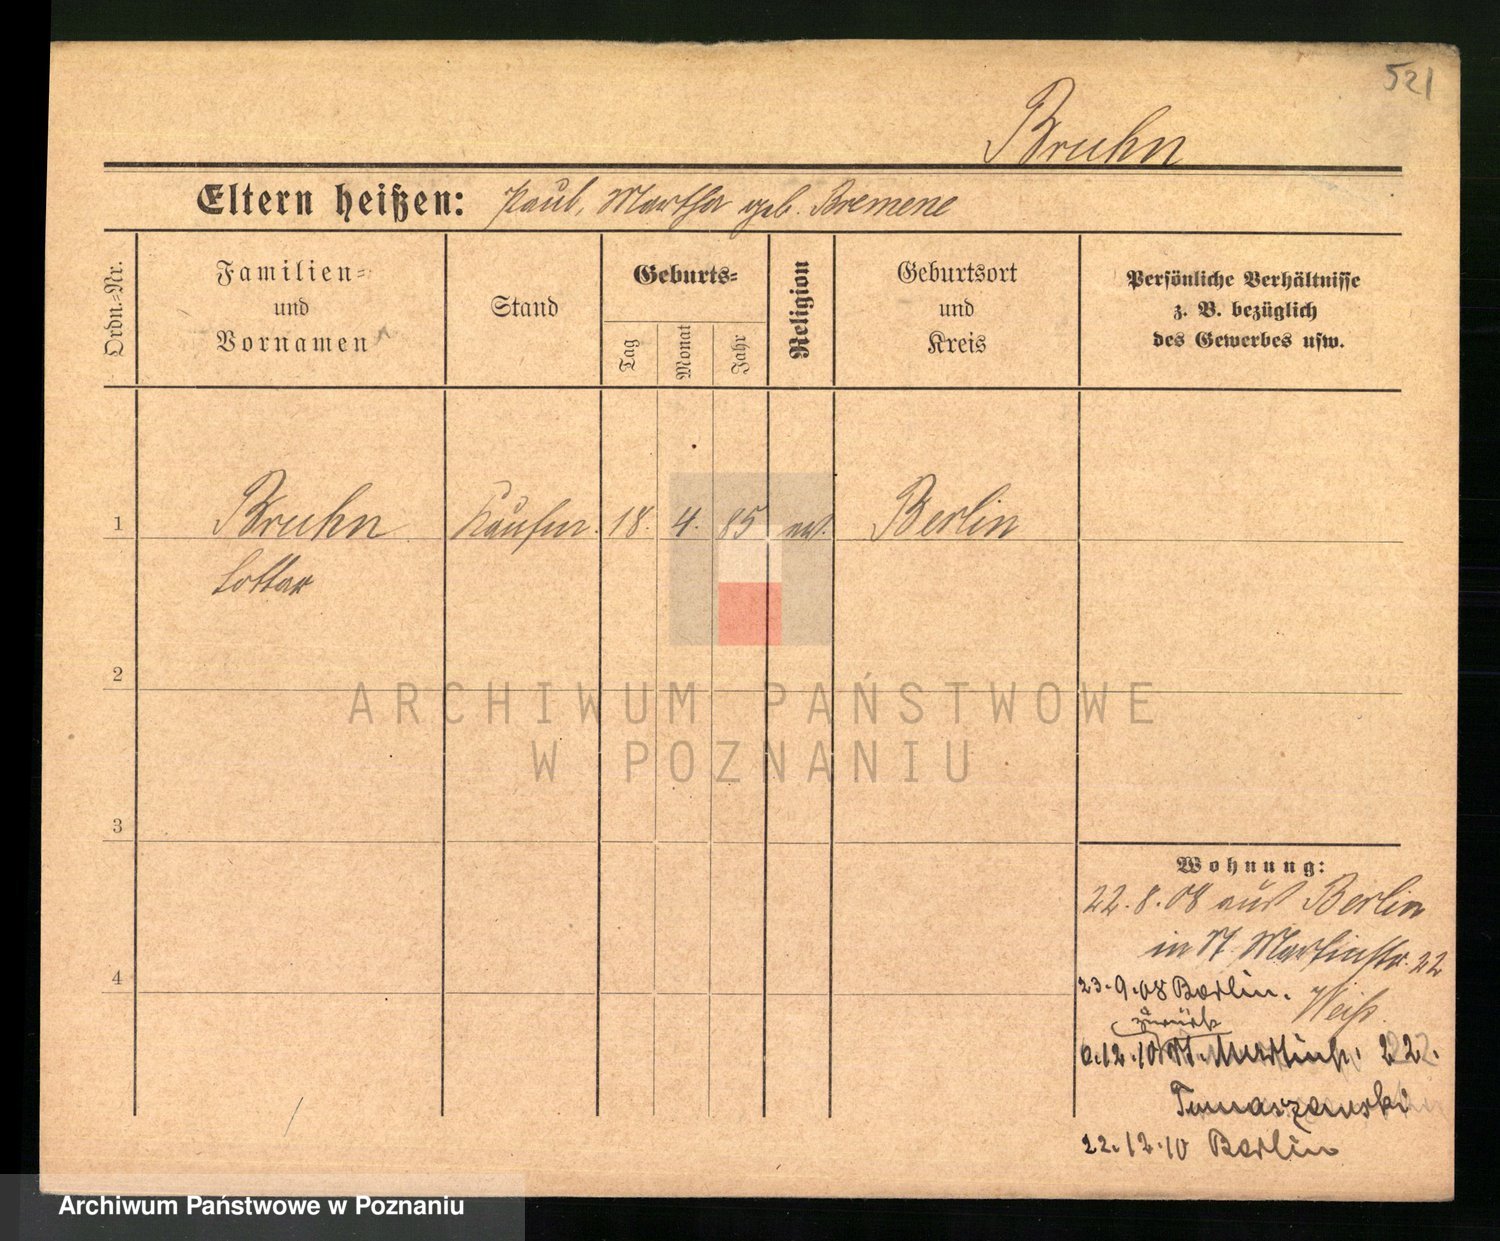 521
Bruhn
Eltern heißen: Paul, Martha geb. Bremene
Ordn.=Nr.
Familien=
und
Vornamen
Stand
Geburts=
Tag
Monat
Jahr
Religion
Geburtsort
und
Kreis
Persönliche Verhältnisse
z. B. bezüglich
des Gewerbes usw.
1 Bruhn Kaufm. 18. 4. 85 ev. Berlin
Lothar
2
ARCHIWUM PAŃSTWOWE
W POZNANIU
3
Wohnung:
22.8.08 aus Berlin
in St. Martinstr. 22
Weiß.
4
23.9.08 Berlin.
zurück
12.10 St. Martinstr. 22.
Tomaszewski
22.12.10 Berlin
Archiwum Państwowe w Poznaniu